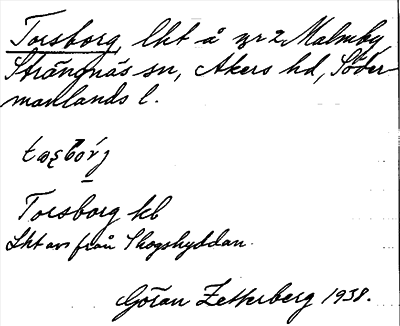 Torsborg, lht å nr 2 Malmby
Strängnäs sn, Åkers hd, Söder-
manlands l.
Torsborg kb
Lht avs från Skogshyddan.
Göran Zetterberg 1938.